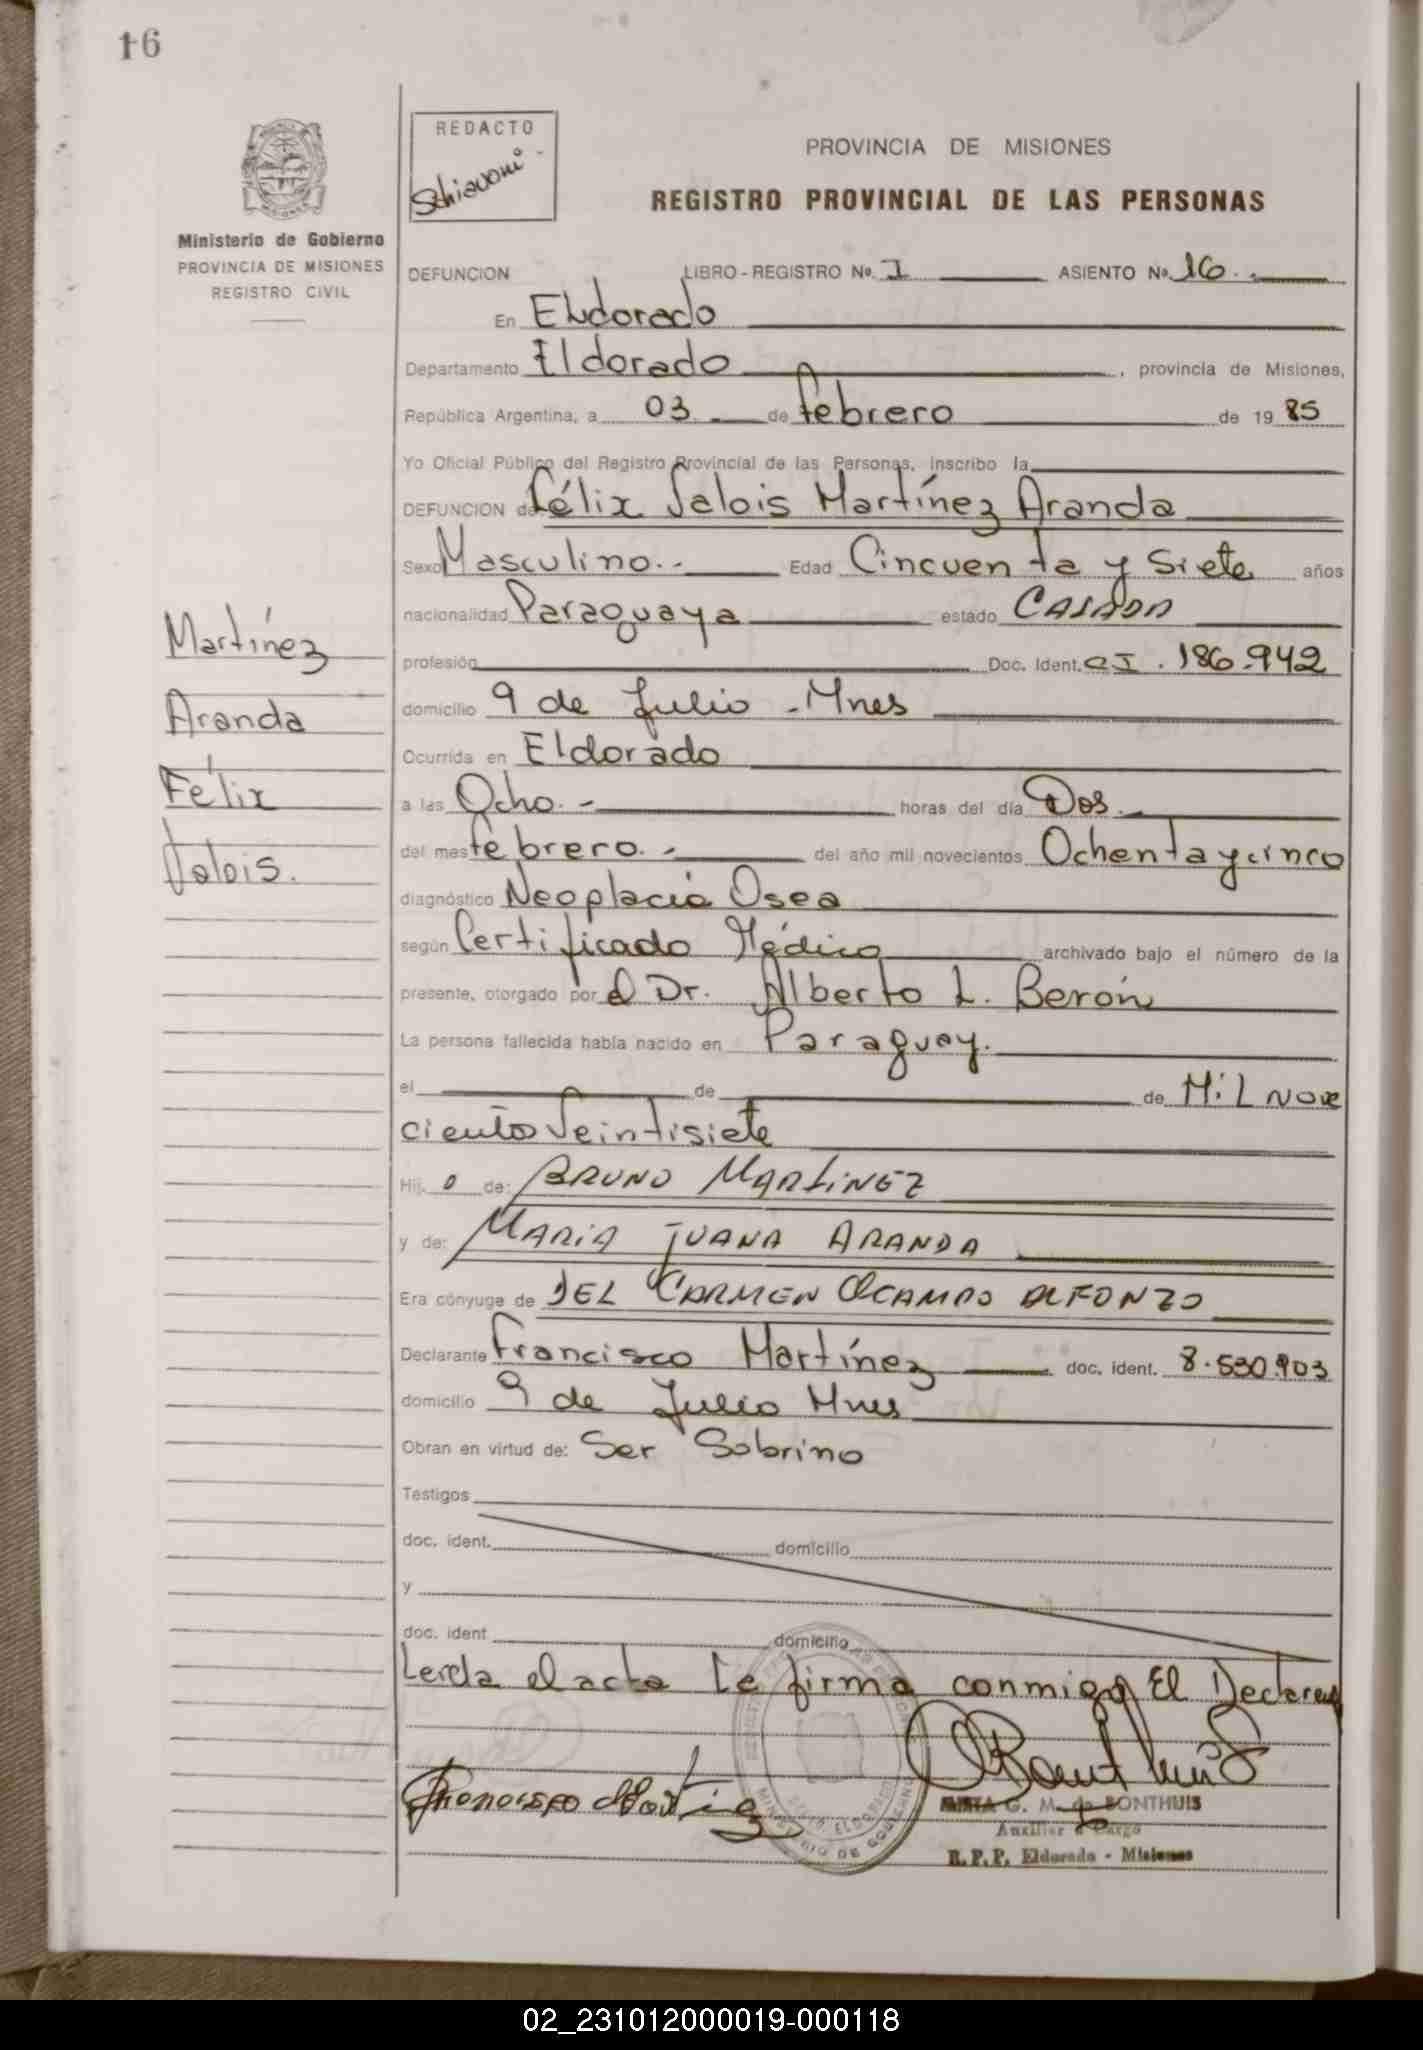 16
REDACTO
Schiavoni
Ministerio de Gobierno
PROVINCIA DE MISIONES
REGISTRO CIVIL
PROVINCIA DE MISIONES
REGISTRO PROVINCIAL DE LAS PERSONAS
DEFUNCION LIBRO - REGISTRO No. I ASIENTO No. 16.
En Eldorado
Departamento Eldorado, provincia de Misiones,
República Argentina, a 03 de febrero de 1985
Yo Oficial Público del Registro Provincial de las Personas, inscribo la
DEFUNCION de: Félix Valois Martínez Aranda
Sexo Masculino.- Edad Cincuenta y Siete años
nacionalidad Paraguaya estado CASADA
profesión Doc. Ident. CI. 186.942
domicilio 9 de Julio - Mnes
Ocurrida en Eldorado
a las Ocho.- horas del día Dos.
del mes febrero.- del año mil novecientos Ochenta y cinco
diagnóstico Neoplacia Osea
según Certificado Médico archivado bajo el número de la
presente, otorgado por el Dr. Alberto L. Berón
La persona fallecida había nacido en Paraguay.
el de de Mil Nove
ciento Veintisiete
Hij o de: BRUNO MARTINEZ
y de: MARIA JUANA ARANDA
Era cónyuge de DEL CARMEN OCAMPO ALFONZO
Declarante Francisco Martínez doc. ident. 8.530.903
domicilio 9 de Julio Mnes
Obran en virtud de: Ser Sobrino
Testigos
doc. ident. domicilio
y
doc. ident domicilio
Leida el acta le firma conmigo El Declarant
Martínez
Aranda
Félix
Valois.
G. M. de BONTHUIS
Auxiliar a Cargo
R. P. P. Eldorado - Misiones
MINISTERIO DE GOBIERNO
02_231012000019-000118